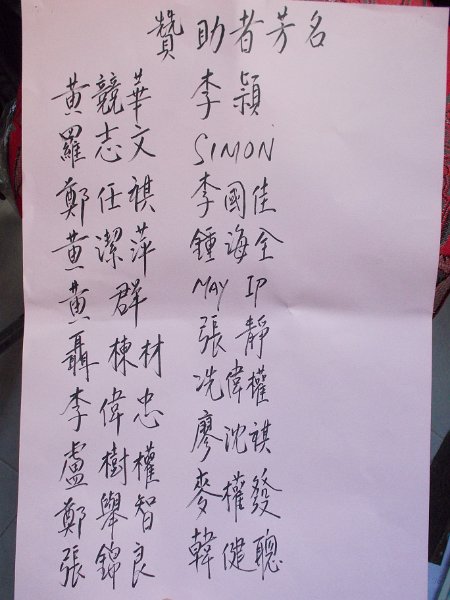 贊助者芳名
黃競華 李穎
羅志文 SIMON
鄭任祺 李國佳
黃潔萍 鍾海全
黃群 MAY IP
聶棟材 張靜
李偉忠 冼偉權
盧樹權 廖沈祺
鄭舉智 麥權發
張錦良 韓健聰